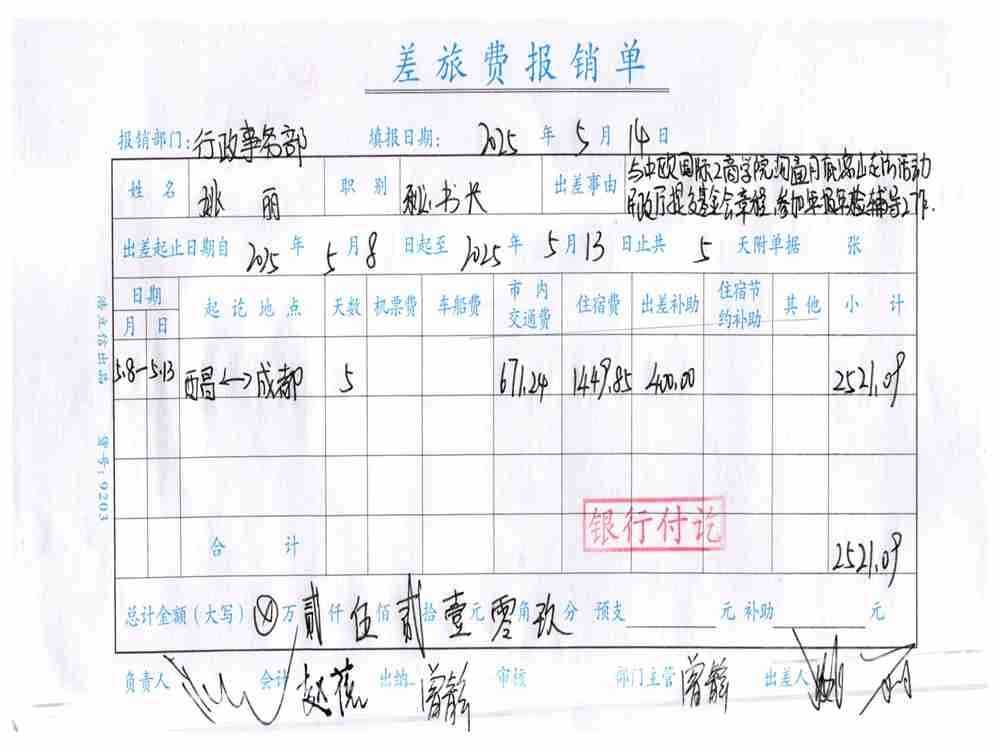 差旅费报销单
报销部门：行政事务部 填报日期： 2025 年 5 月 14 日
姓名 姚丽 职别 秘书长 出差事由 与中欧国际工商学院沟通
民政厅提交基金会章程，参加年报年检辅导工作.
出差起止日期自 2025 年 5 月 8 日起至 2025 年 5 月 13 日止共 5 天附单据 张
日期 起讫地点 天数 机票费 车船费 市内交通费 住宿费 出差补助 住宿节约补助 其他 小计
月 日
5.8—5.13 西昌<->成都 5 671.24 1449.85 400.00 2521.09
银行付讫
合计 2521.09
总计金额（大写） ⊗ 万 贰 仟 伍 佰 贰 拾 壹 元 零 角 玖 分 预支 元 补助 元
负责人 会计 赵 出纳 曾静 审核 部门主管 曾静 出差人 姚丽
货号：9203